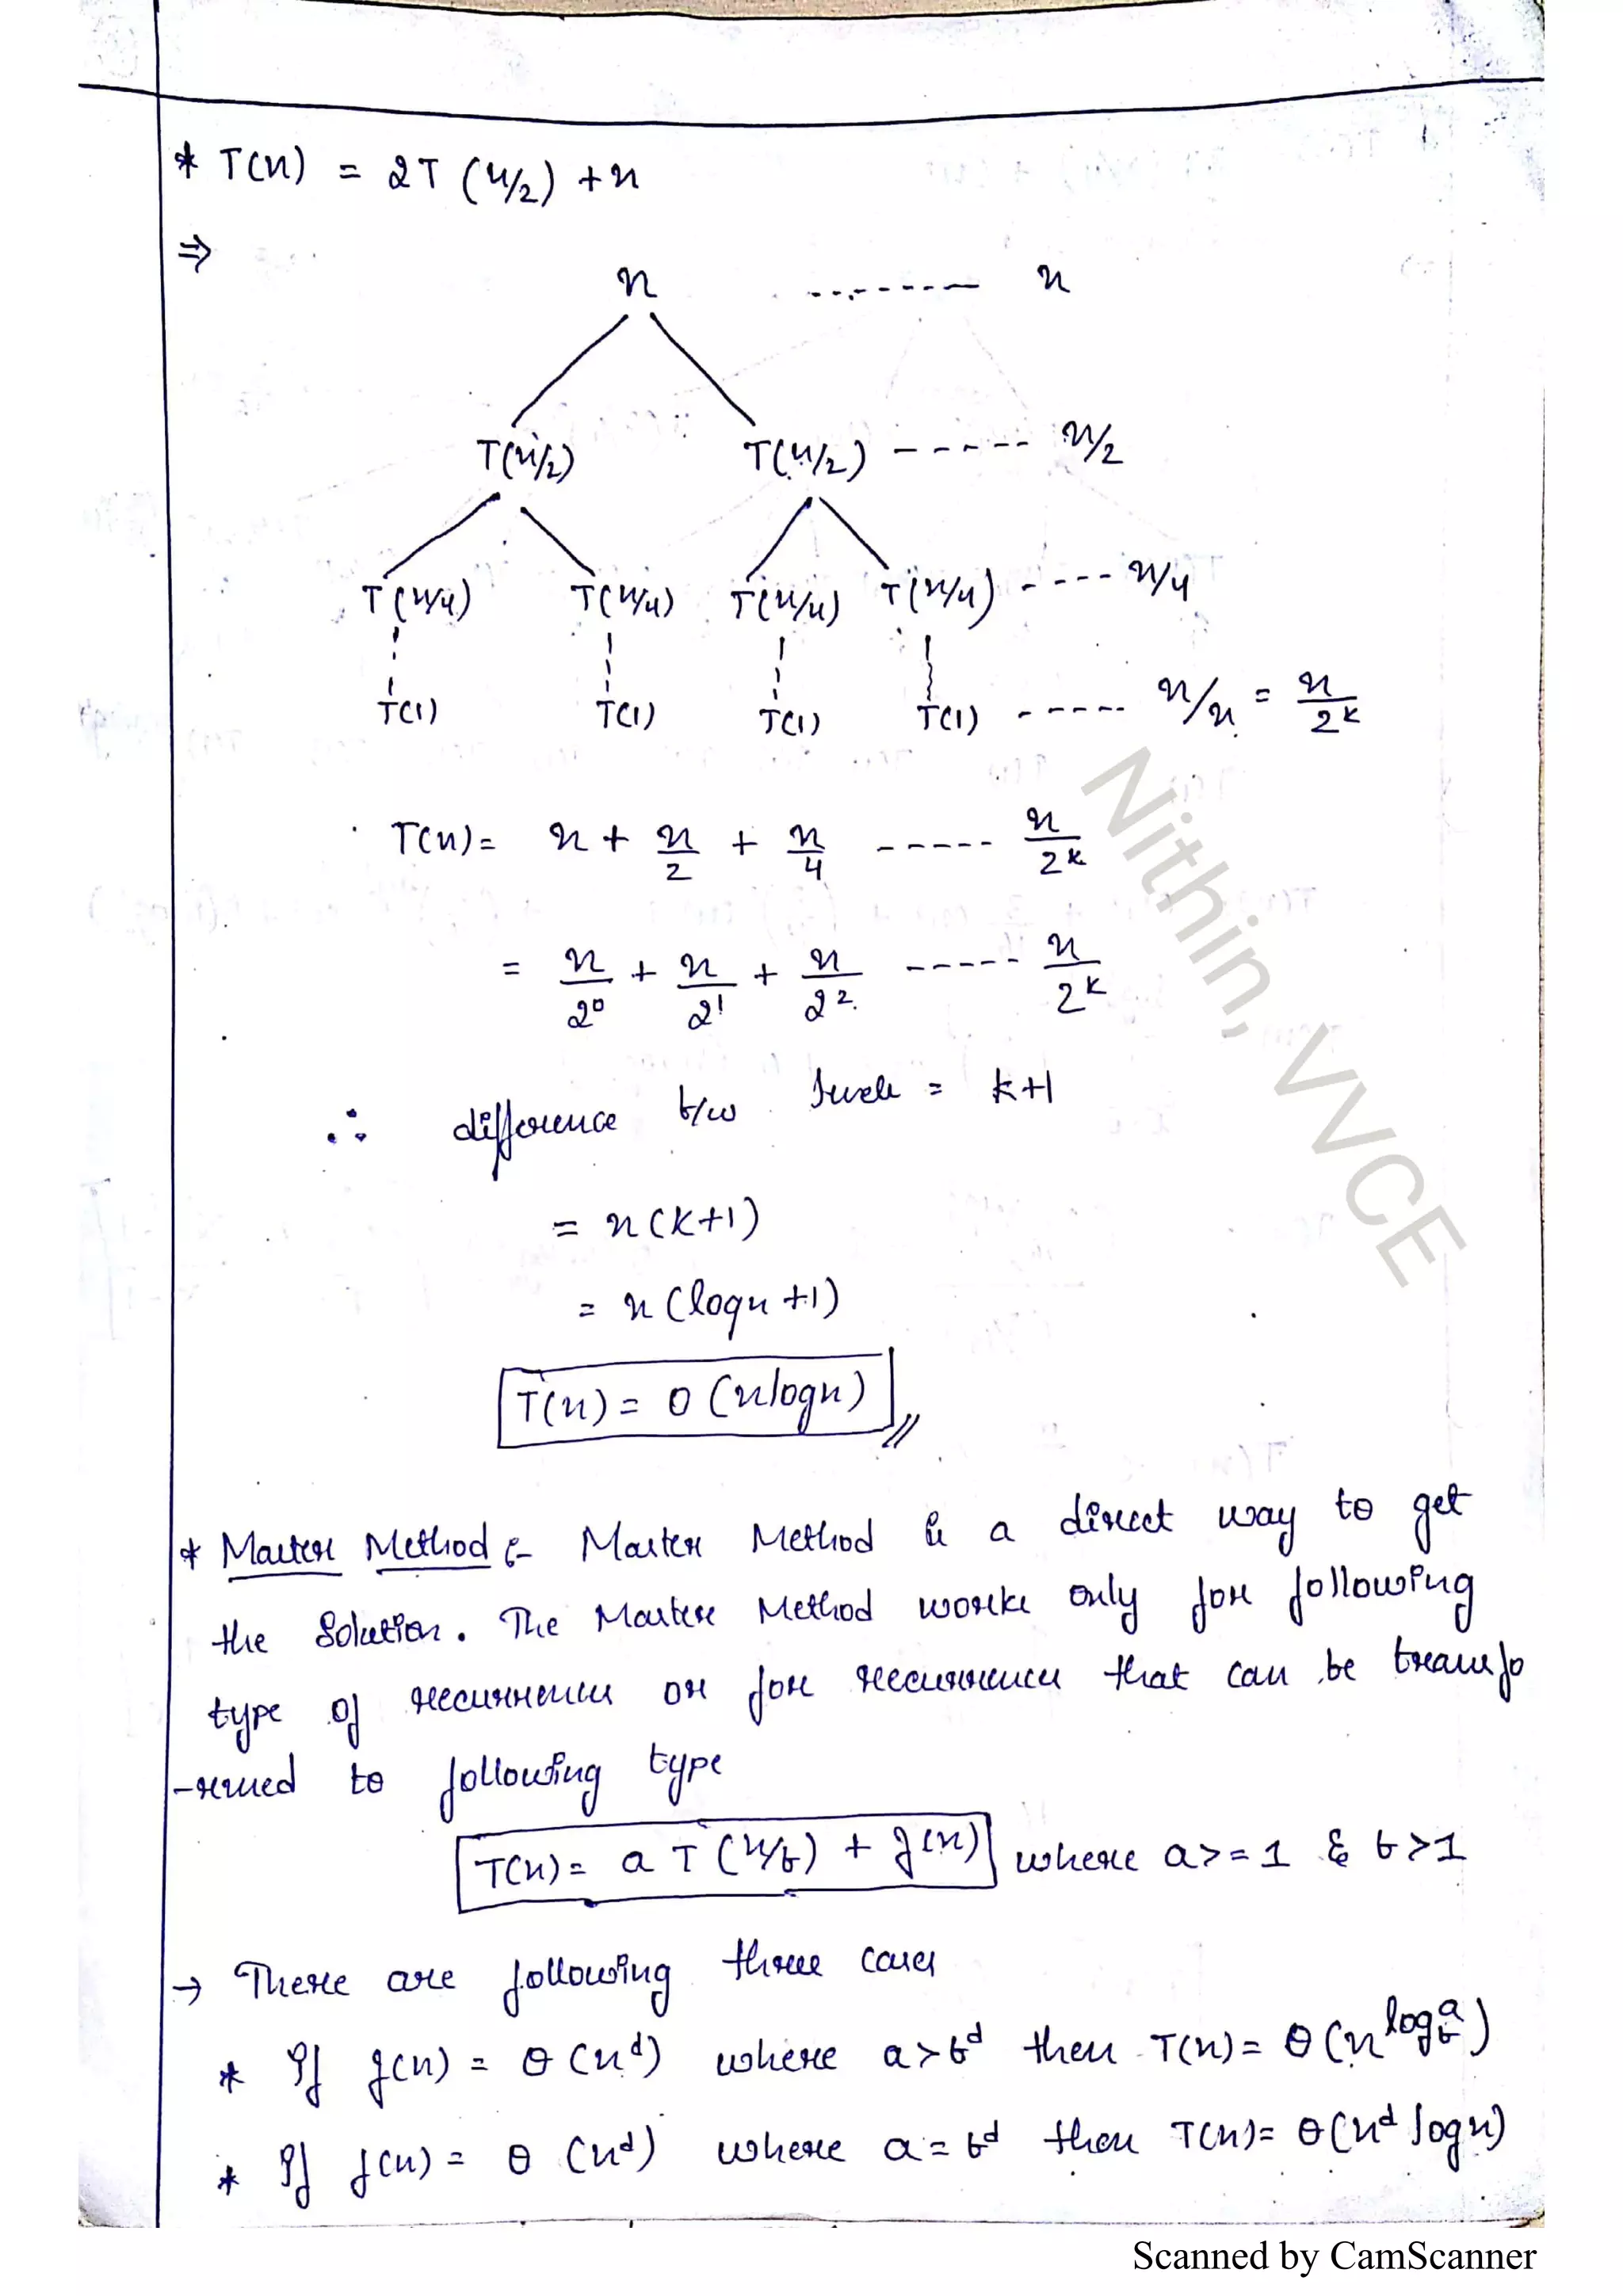 * T(n) = 2T (n/2) + n
⇒
n -------- n
T(n/2) T(n/2) ----- n/2
T(n/4) T(n/4) T(n/4) T(n/4) ---- n/4
T(1) T(1) T(1) T(1) ----- n/n = n/2^k
T(n) = n + n/2 + n/4 ----- n/2^k
= n/2^0 + n/2^1 + n/2^2 ----- n/2^k
∴ difference b/w levels = k+1
= n(k+1)
= n(logn+1)
T(n) = O(nlogn)
* Master Method :- Master Method is a direct way to get
the Solution. The Master Method works only for following
type of recurrences or for recurrences that can be transfo
-rmed to following type
T(n) = a T(n/b) + f(n) where a>=1 & b>1
→ There are following three cases
* If f(n) = Θ(n^d) where a>b^d then T(n) = Θ(n^log_b^a)
* If f(n) = Θ(n^d) where a=b^d then T(n) = Θ(n^d logn)
Nithin, VVCE
Scanned by CamScanner